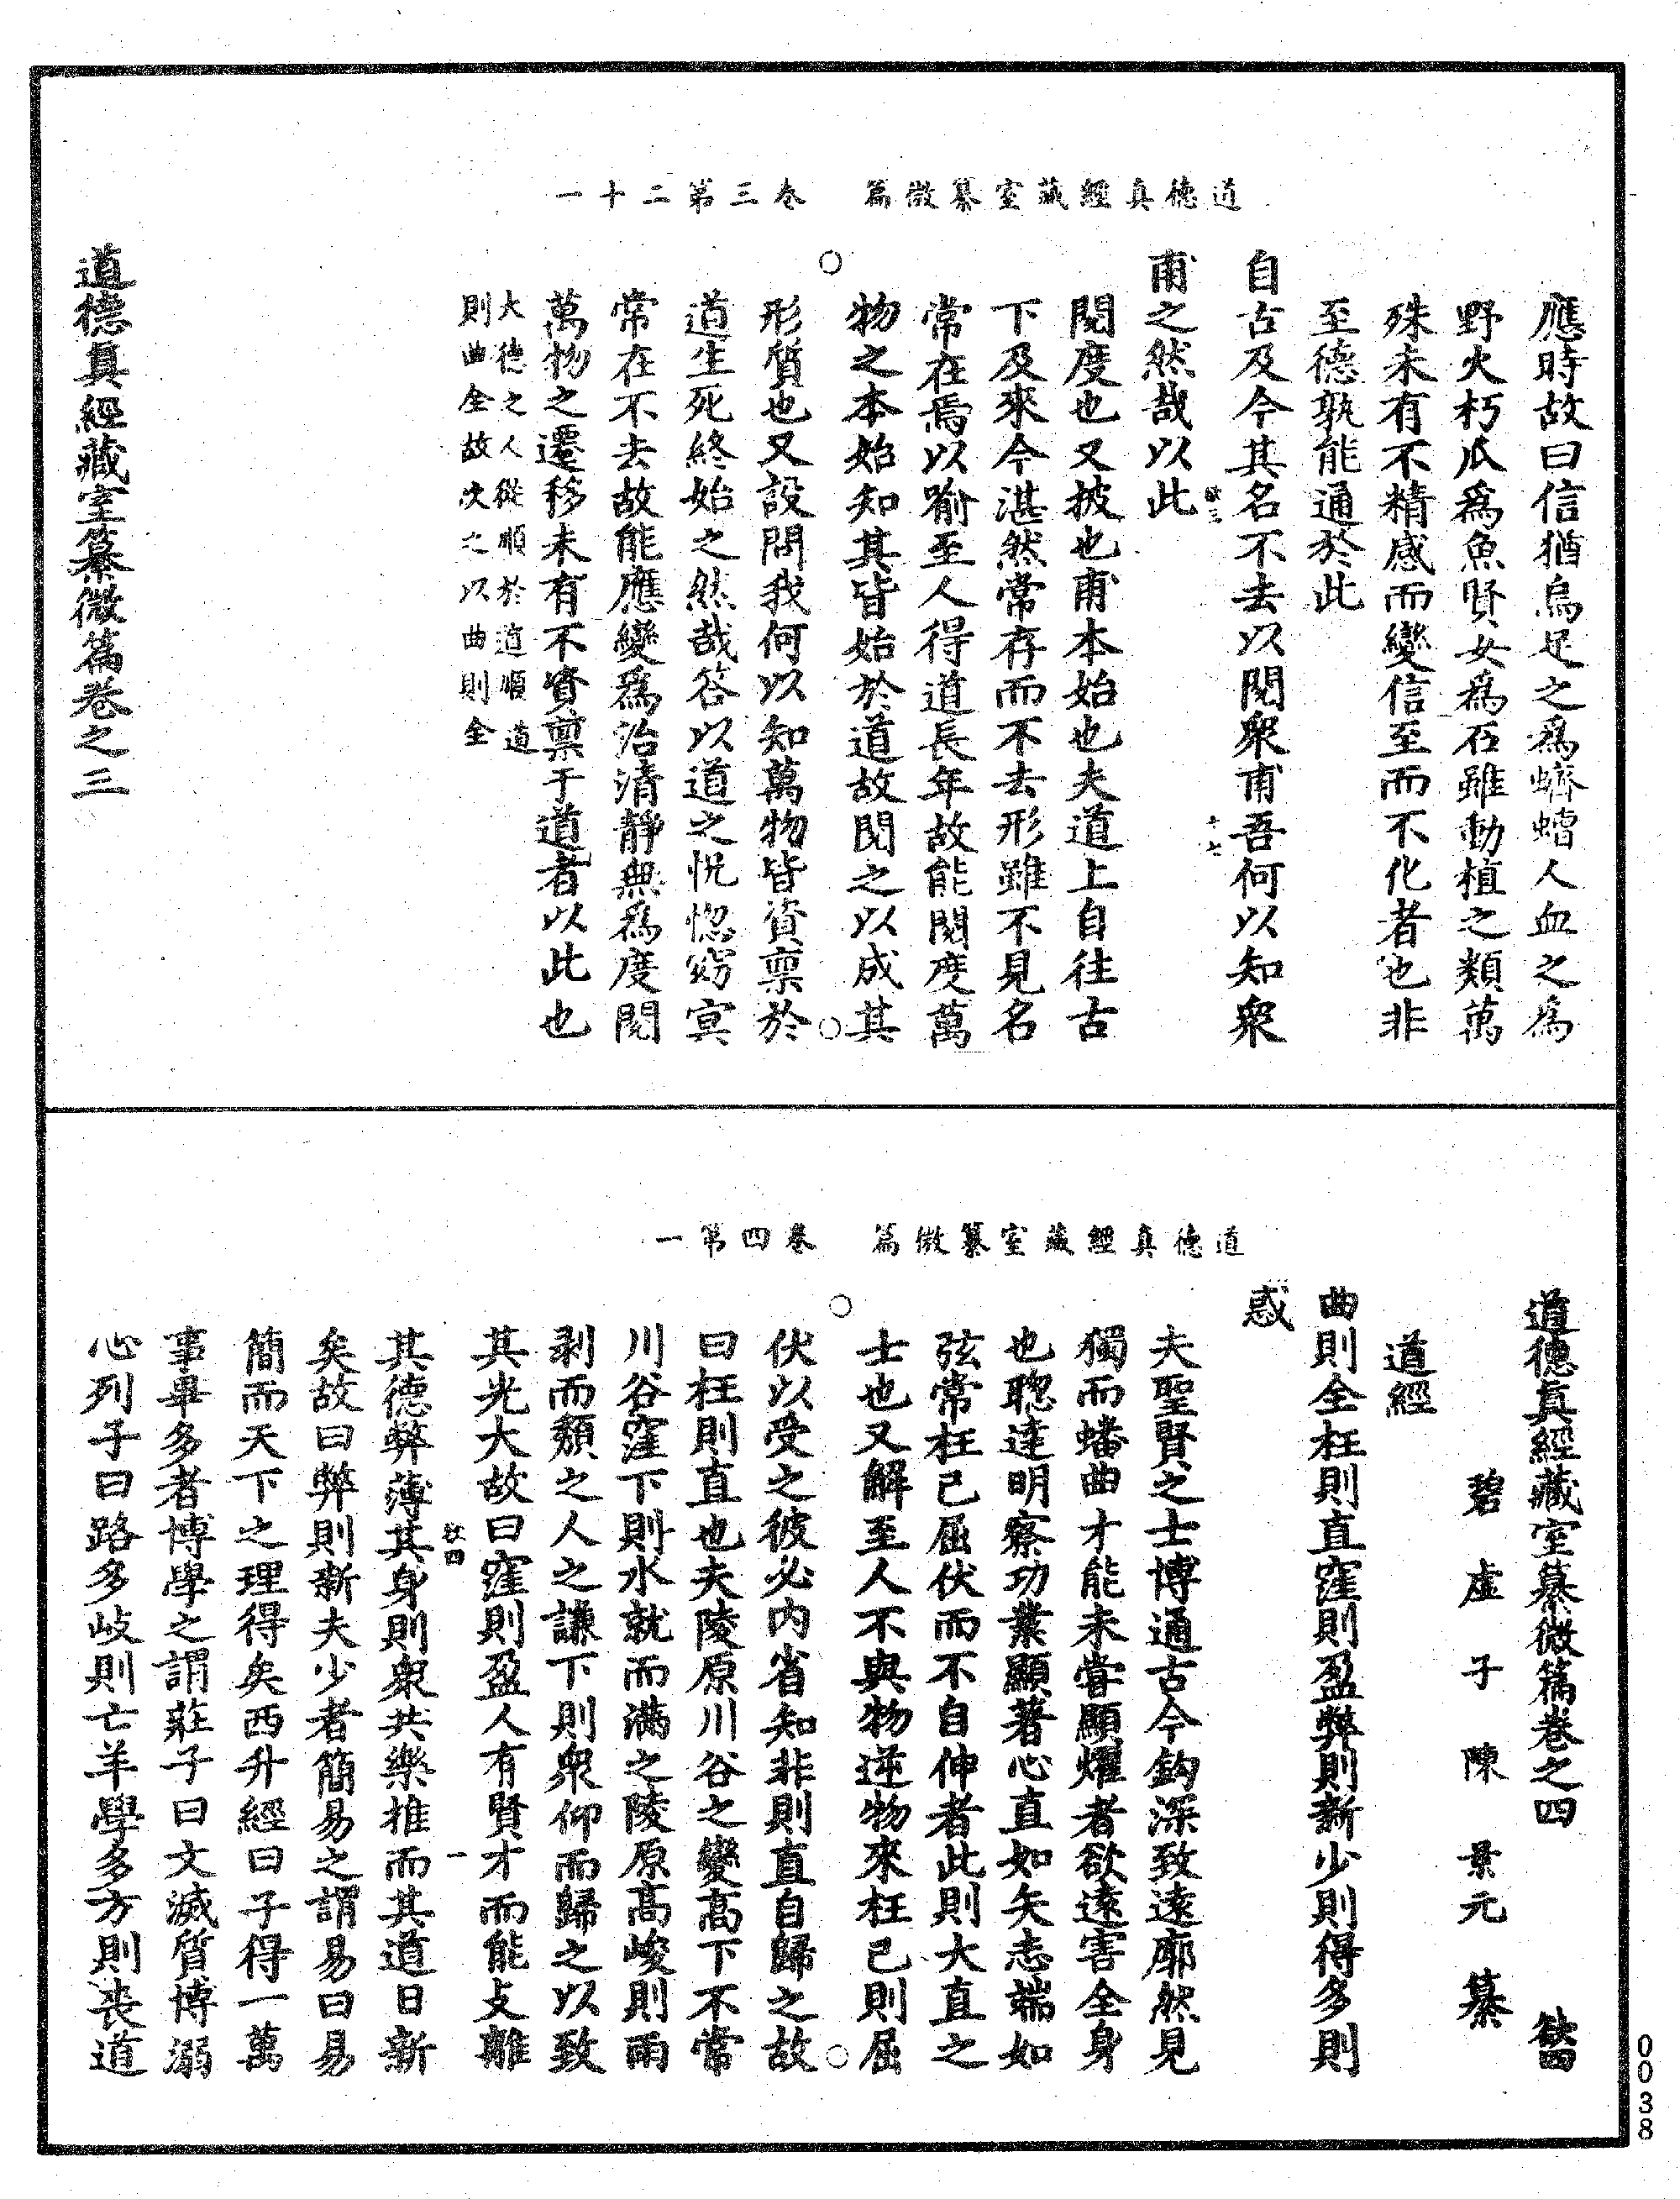 道德真經藏室纂微篇　卷三第二十一
應時故曰信猶烏足之為蠐螬人血之為
野火朽瓜為魚賢女為石雖動植之類萬
殊未有不精感而變信至而不化者也非
至德孰能通於此
自古及今其名不去以閱衆甫吾何以知衆
欲三　十七
甫之然哉以此
閱度也又披也甫本始也夫道上自往古
下及來今湛然常存而不去形雖不見名
常在焉以喻至人得道長年故能閱度萬
物之本始知其皆始於道故閱之以成其
形質也又設問我何以知萬物皆資稟於
道生死終始之然哉答以道之怳惚窈冥
常在不去故能應變為治清靜無為度閱
萬物之遷移未有不資稟于道者以此也
大德之人從順於道順道
則曲全故次之以曲則全
道德真經藏室纂微篇卷之三
道德真經藏室纂微篇　卷四第一
道德真經藏室纂微篇卷之四　欲四
碧虛子陳景元纂
道經
曲則全枉則直窪則盈弊則新少則得多則
惑
夫聖賢之士博通古今鈎深致遠廓然見
獨而蟠曲才能未嘗顯燿者欲遠害全身
也聰達明察功業顯著心直如矢志端如
弦常枉己屈伏而不自伸者此則大直之
士也又解至人不與物逆物來枉己則屈
伏以受之彼必內省知非則直自歸之故
曰枉則直也夫陵原川谷之變高下不常
川谷窪下則水就而滿之陵原高峻則雨
剥而頹之人之謙下則衆仰而歸之以致
其光大故曰窪則盈人有賢才而能支離
欲四　一
其德弊薄其身則衆共樂推而其道日新
矣故曰弊則新夫少者簡易之謂易曰易
簡而天下之理得矣西升經曰子得一萬
事畢多者博學之謂莊子曰文滅質博溺
心列子曰路多歧則亡羊學多方則喪道
0038